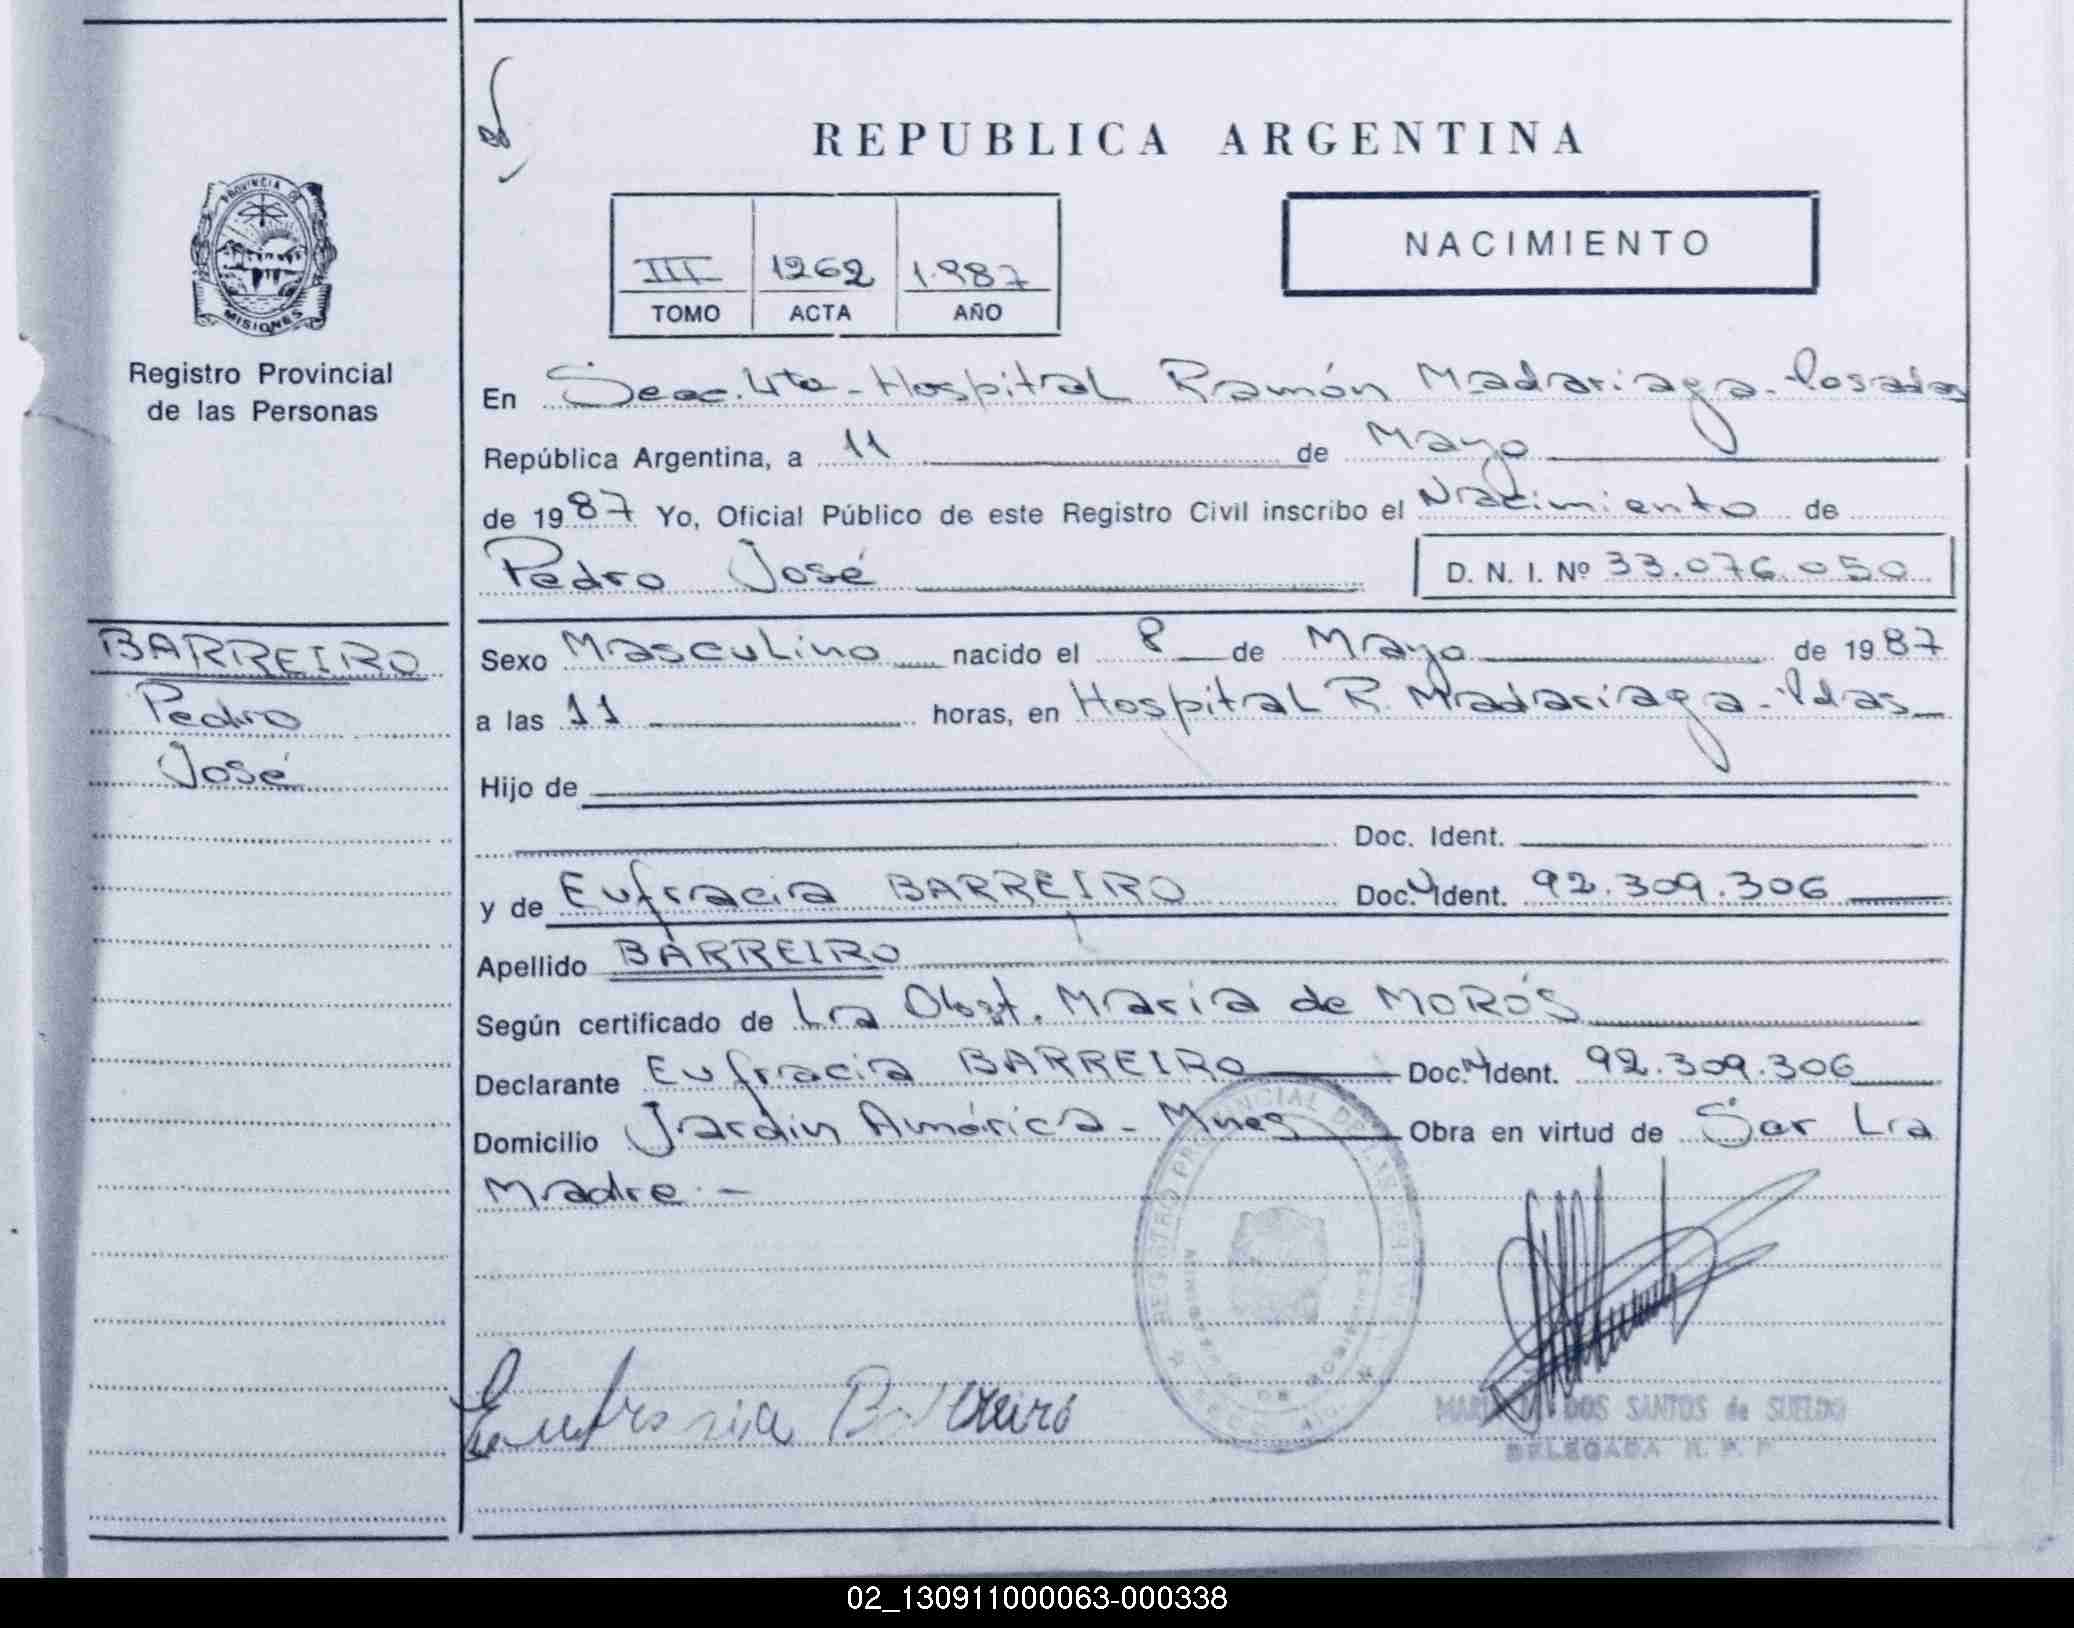 REPUBLICA ARGENTINA
PROVINCIA DE
MISIONES
Registro Provincial
de las Personas
III 1262 1.987
TOMO ACTA AÑO
NACIMIENTO
En Secc. 4ta - Hospital Ramón Madariaga - Posadas
República Argentina, a 11 de Mayo
de 1987 Yo, Oficial Público de este Registro Civil inscribo el Nacimiento de
Pedro José D. N. I. Nº 33.076.050
BARREIRO
Pedro
José
Sexo Masculino nacido el 8 de Mayo de 1987
a las 11 horas, en Hospital R. Madariaga - Pdas
Hijo de
Doc. Ident.
y de Eufracia BARREIRO Doc. Ident. 92.309.306
Apellido BARREIRO
Según certificado de La Obst. María de MORÓS
Declarante Eufracia BARREIRO Doc. Ident. 92.309.306
Domicilio Jardín América - Mnes Obra en virtud de Ser La
Madre.-
REGISTRO PROVINCIAL DE LAS PERSONAS
Eufrasia Barreiro
DOS SANTOS de SUELDO
DELEGADA R. P. P.
02_130911000063-000338